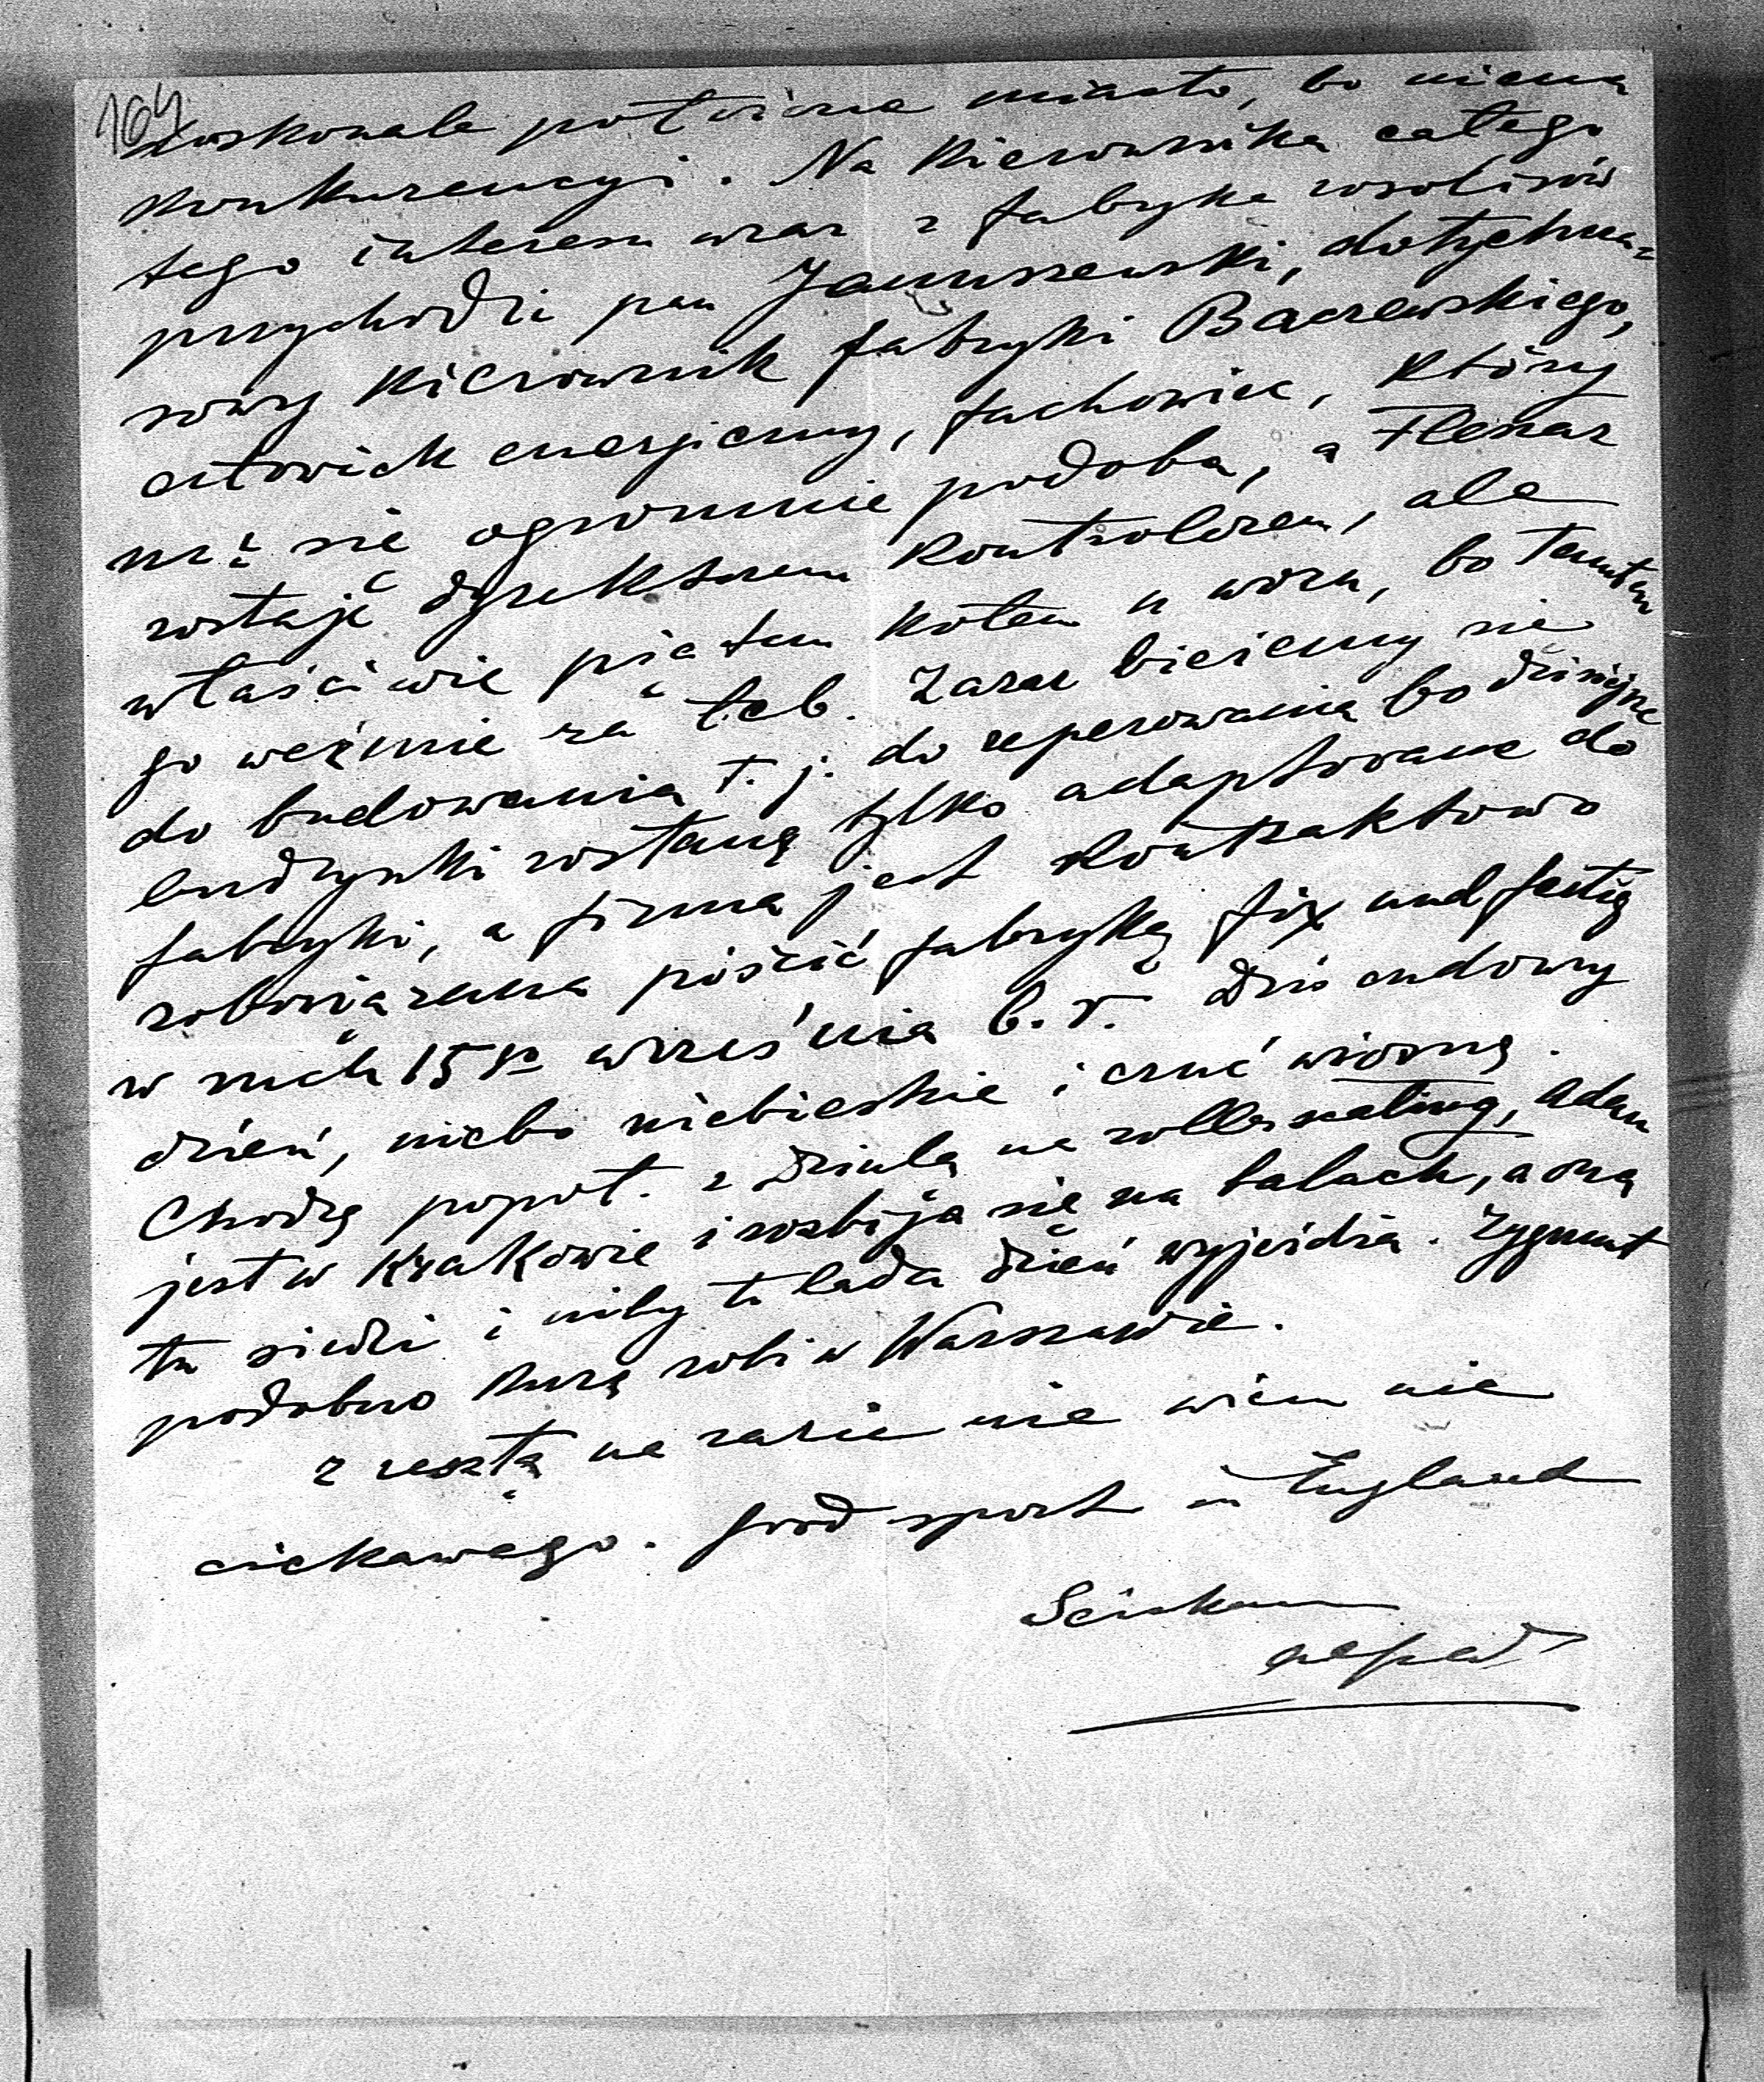 164
doskonale położone miasto, bo niema
konkurencyi. Na kierownika całego
tego interesu wraz z fabyką rosolisów
przychodzi pan Januszewski, dotychcza-
sowy kierownik fabryki Baczewskiego,
człowiek energiczny, fachowiec, który
mi się ogromnie podoba, a Flekar
zostaje dyrektorem kontrolorem, ale
właściwie piątem kołem u wozu, bo Tamten
go weźmie za łeb. Zaraz bierzemy się
do budowania t. j. do reperowania bo dzisiejsze
budynki zostaną tylko adaptowane do
fabryki, a firma jest kontraktowo
zobowiązana puścić fabrykę fix und fertig
w ruch 15go września b. r. Dziś cudowny
dzień, niebo niebieskie i czuć wiosnę.
Chodzę popoł. z Dziulą na rollerscating, Adam
jest w Krakowie i rozbija się na balach, a ona
tu siedzi i niby to lada dzień wyjeżdża. Zygmunt
podobno kurę robi w Warszawie.
Z resztą na razie nie wiem nic
ciekawego. Good sport in England
Sciskam